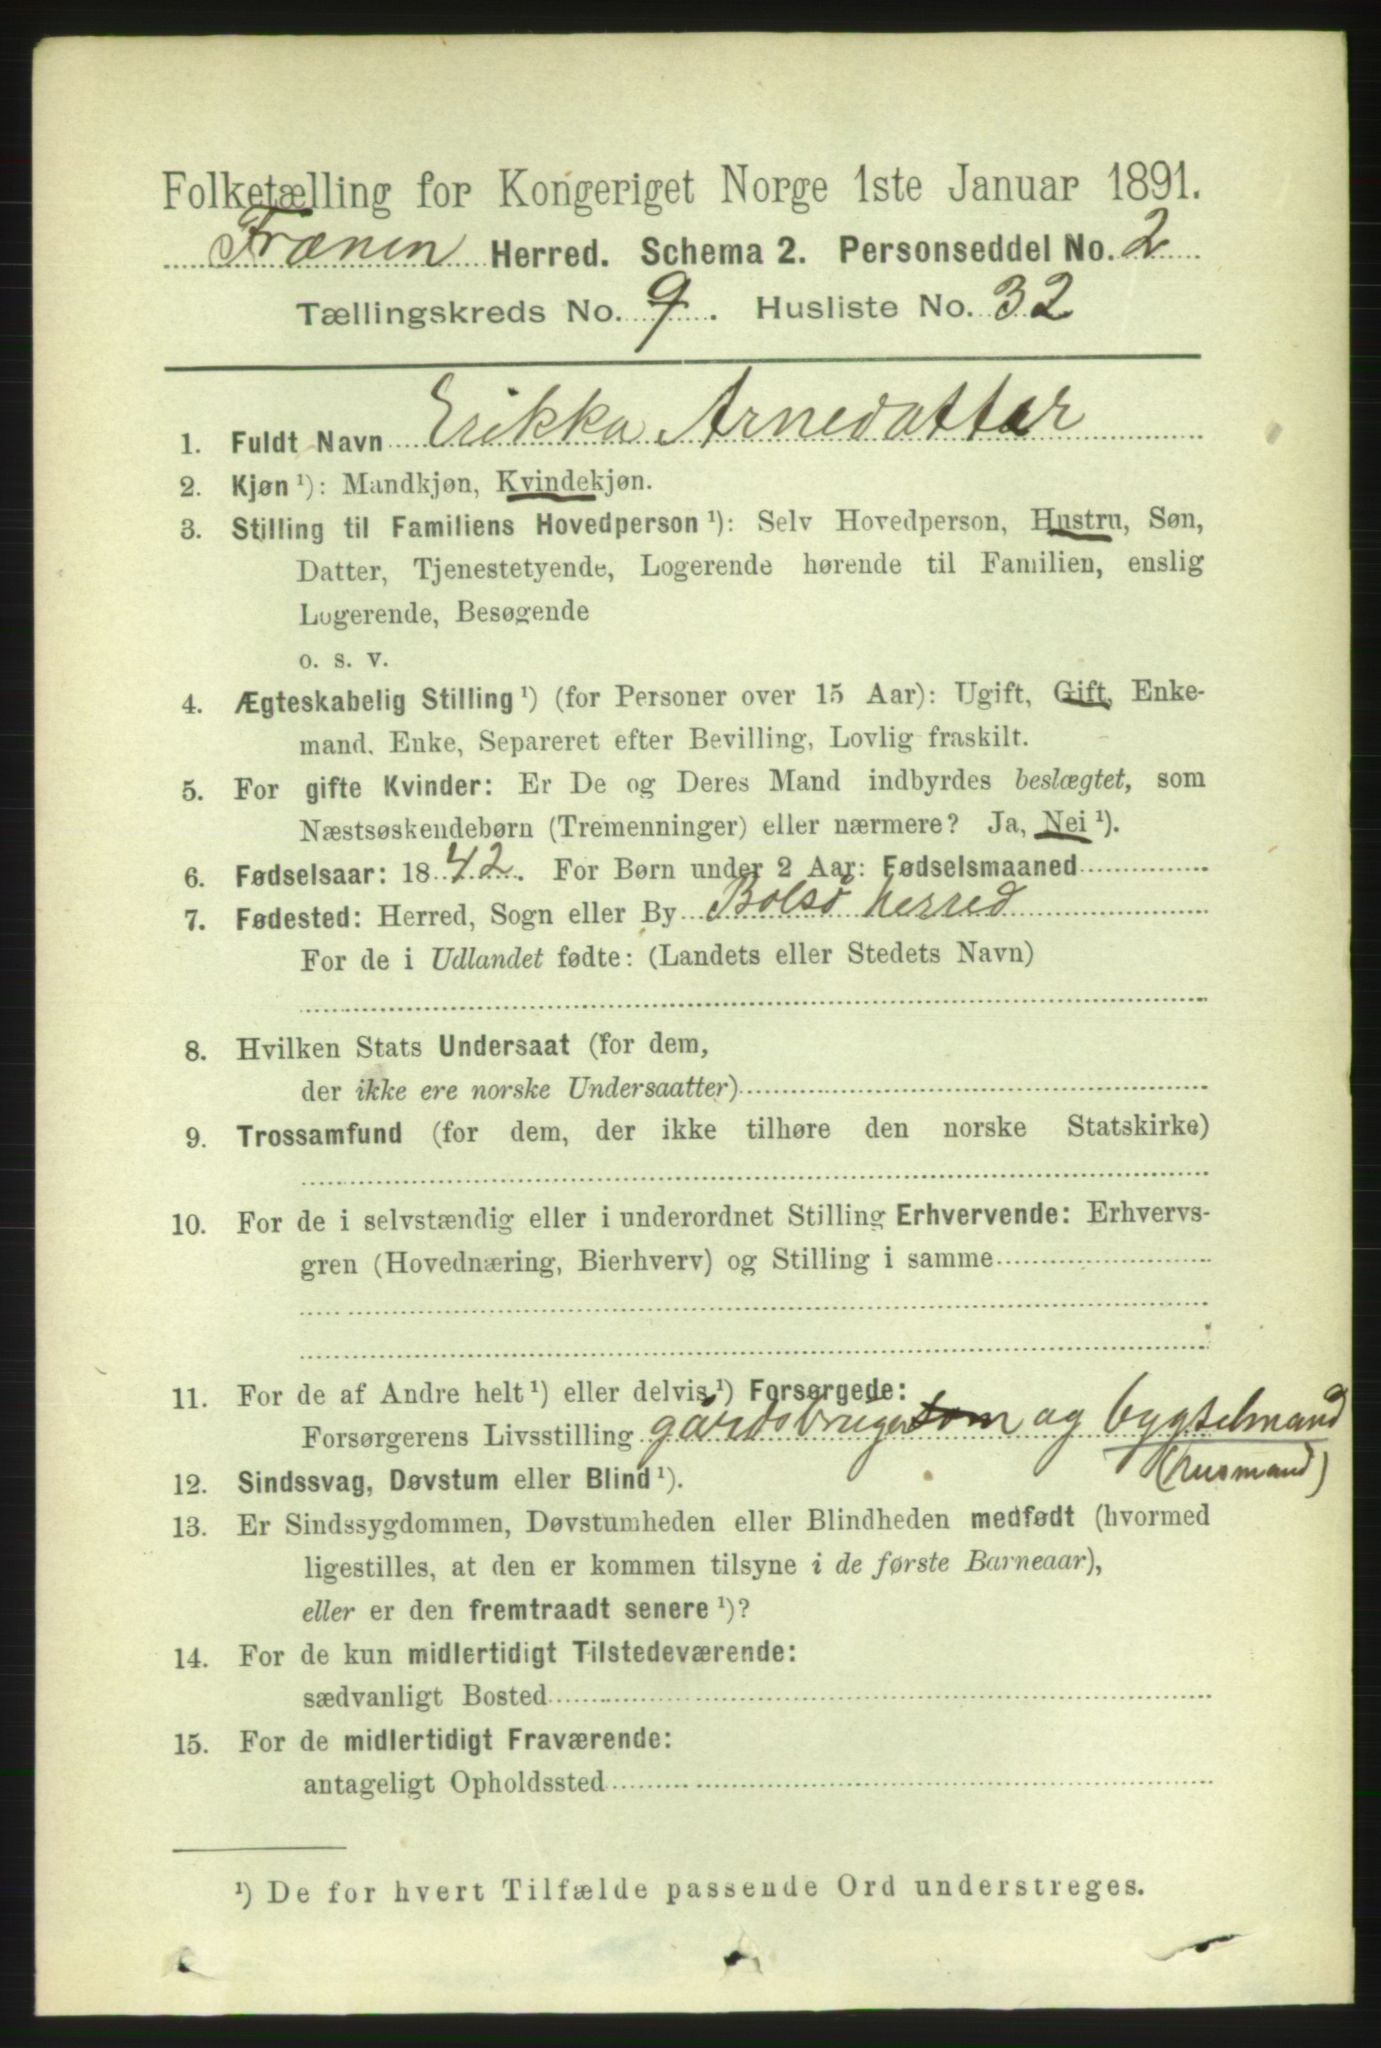 Folketælling for Kongeriget Norge 1ste Januar 1891.
Frænen Herred. Schema 2. Personseddel No. 2
Tællingskreds No. 9. Husliste No. 32
1. Fuldt Navn Erikka Arnedatter
2. Kjøn ¹): Mandkjøn, Kvindekjøn.
3. Stilling til Familiens Hovedperson ¹): Selv Hovedperson, Hustru, Søn,
Datter, Tjenestetyende, Logerende hørende til Familien, enslig
Logerende, Besøgende
o. s. v.
4. Ægteskabelig Stilling ¹) (for Personer over 15 Aar): Ugift, Gift, Enke-
mand, Enke, Separeret efter Bevilling, Lovlig fraskilt.
5. For gifte Kvinder: Er De og Deres Mand indbyrdes beslægtet, som
Næstsøskendebørn (Tremenninger) eller nærmere? Ja, Nei ¹).
6. Fødselsaar: 1842. For Børn under 2 Aar: Fødselsmaaned
7. Fødested: Herred, Sogn eller By Bolsø herred
For de i Udlandet fødte: (Landets eller Stedets Navn)
8. Hvilken Stats Undersaat (for dem,
der ikke ere norske Undersaatter)
9. Trossamfund (for dem, der ikke tilhøre den norske Statskirke)
10. For de i selvstændig eller i underordnet Stilling Erhvervende: Erhvervs-
gren (Hovednæring, Bierhverv) og Stilling i samme
11. For de af Andre helt ¹) eller delvis ¹) Forsørgede:
Forsørgerens Livsstilling gårdsbruger som og bygselmand
(husmand)
12. Sindssvag, Døvstum eller Blind ¹).
13. Er Sindssygdommen, Døvstumheden eller Blindheden medfødt (hvormed
ligestilles, at den er kommen tilsyne i de første Barneaar),
eller er den fremtraadt senere ¹)?
14. For de kun midlertidigt Tilstedeværende:
sædvanligt Bosted
15. For de midlertidigt Fraværende:
antageligt Opholdssted
¹) De for hvert Tilfælde passende Ord understreges.